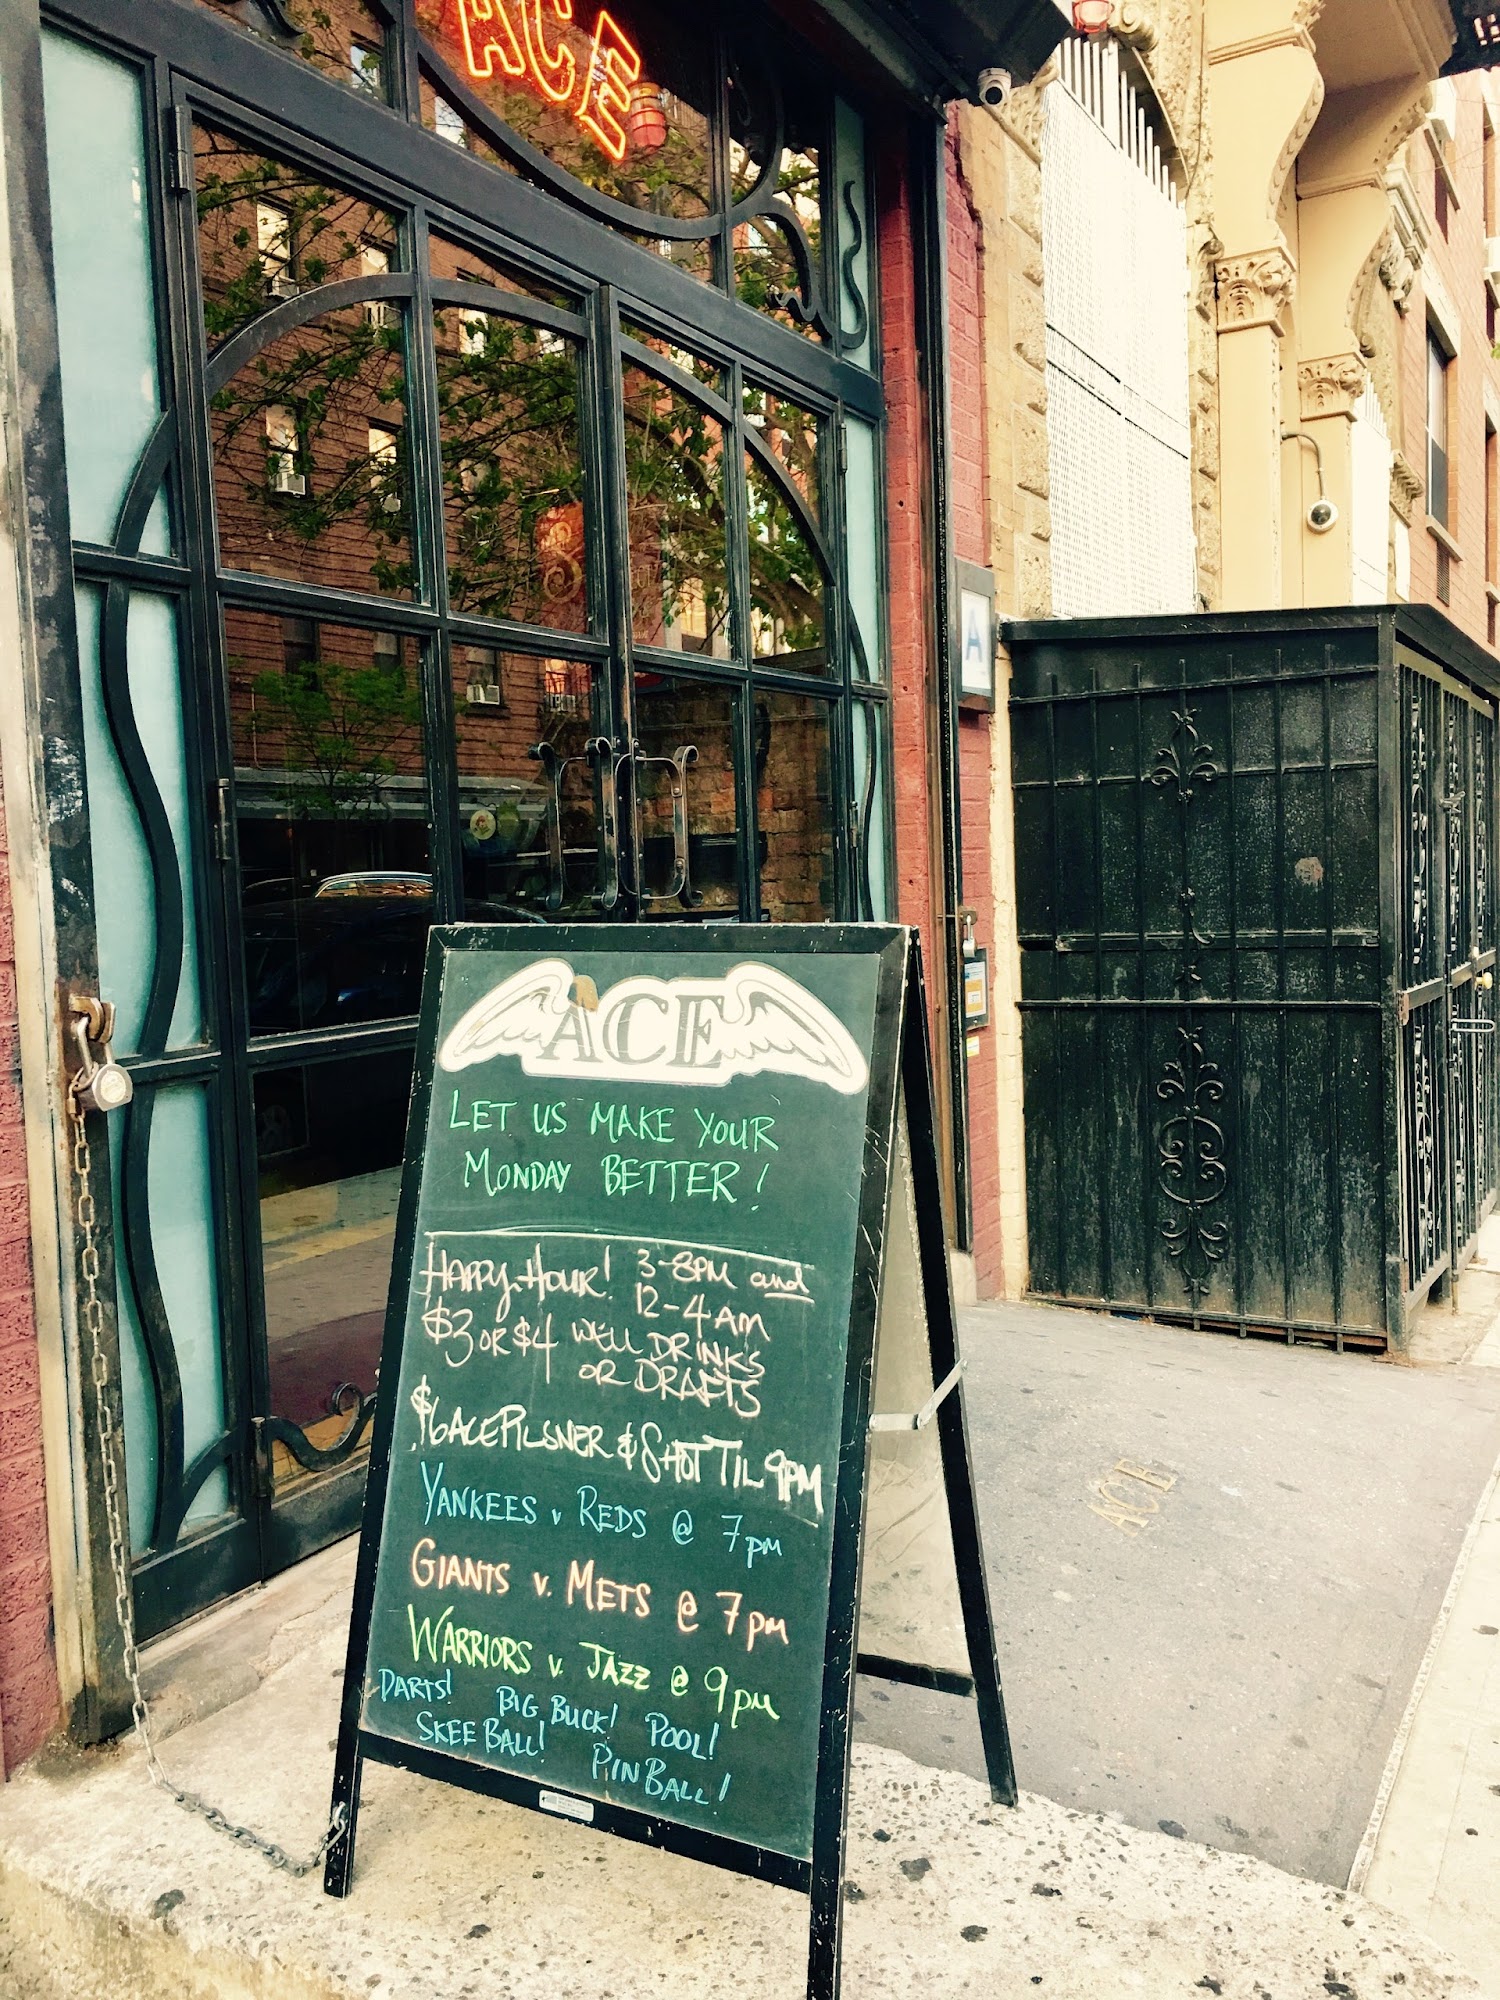 ACE
A
ACE
LET US MAKE YOUR
MONDAY BETTER!
HAPPY HOUR! 3-8PM and
12-4AM
$3 OR $4 WELL DRINKS
OR DRAFTS
$6 ACE PILSNER & SHOT TIL 9PM
YANKEES v REDS @ 7pm
GIANTS v. METS @ 7pm
WARRIORS v. JAZZ @ 9pm
DARTS! BIG BUCK! POOL!
SKEE BALL! PINBALL!
ACE